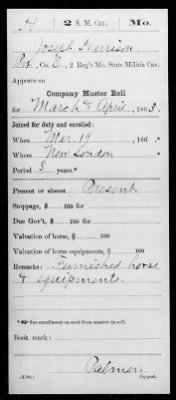 H | 2 S. M. Cav. | Mo.
Joseph Harrison
Pvt., Co. E, 2 Reg't Mo. State Militia Cav.
Appears on
Company Muster Roll
for March & April, 1863.
Joined for duty and enrolled:
When Mar 19, 186 .*
Where New London
Period 3 years.*
Present or absent Present
Stoppage, $ 100 for
Due Gov't, $ 100 for
Valuation of horse, $ 100
Valuation of horse equipments, $ 100
Remarks: Furnished horse
& equipments.
*See enrollment on card from muster-in roll.
Book mark:
Palmer
Copyist.